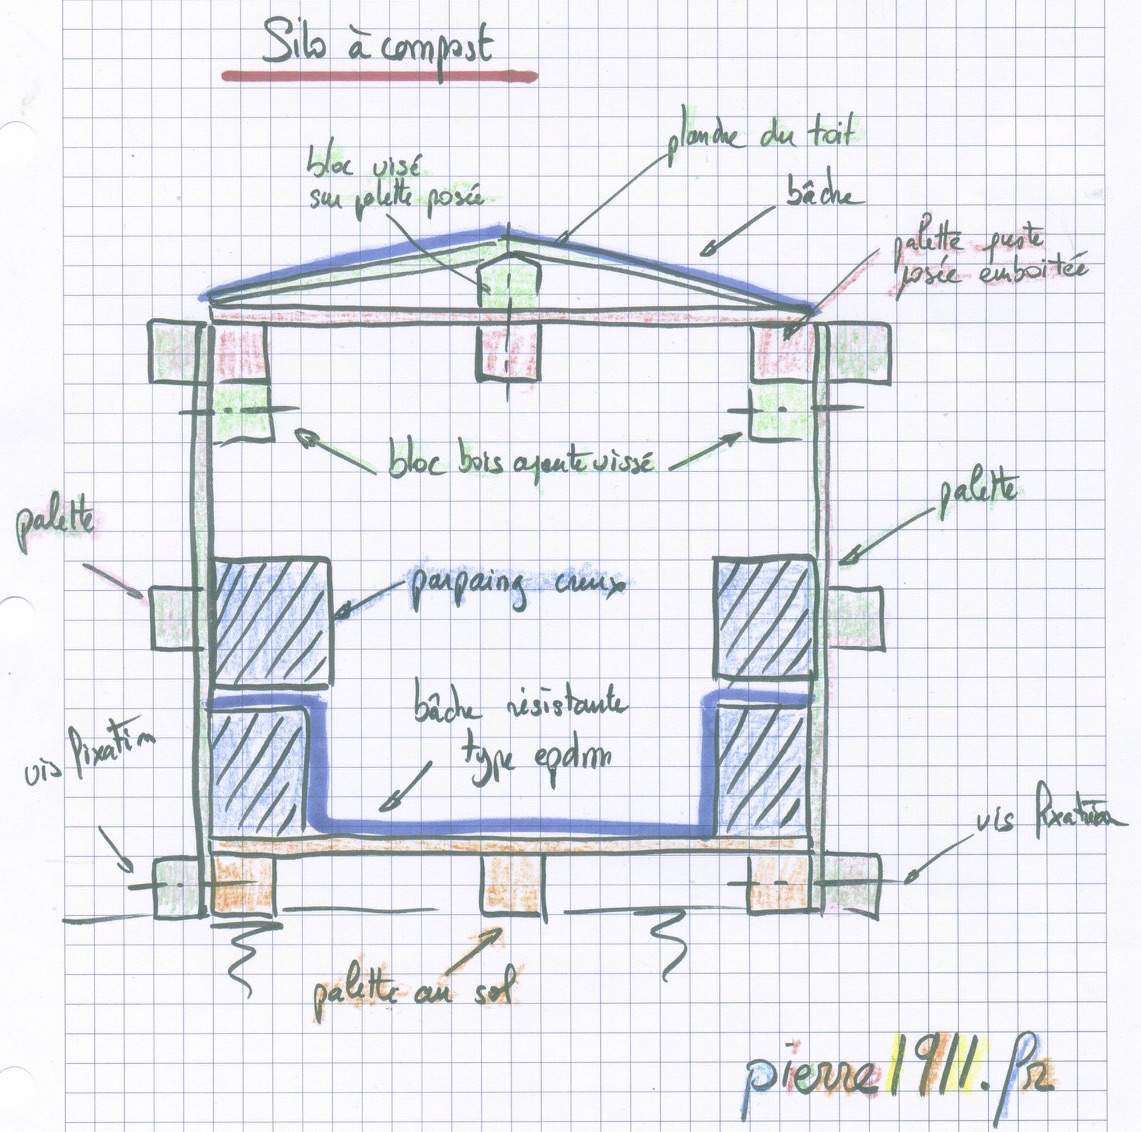 Silo à compost
planche du toit
bloc visé
sur palette posée
bâche
palette juste
posée emboitée
bloc bois ajouté vissé
palette
palette
parpaing creux
bâche résistante
type epdm
vis fixation
vis fixation
palette au sol
pierre1911.fr